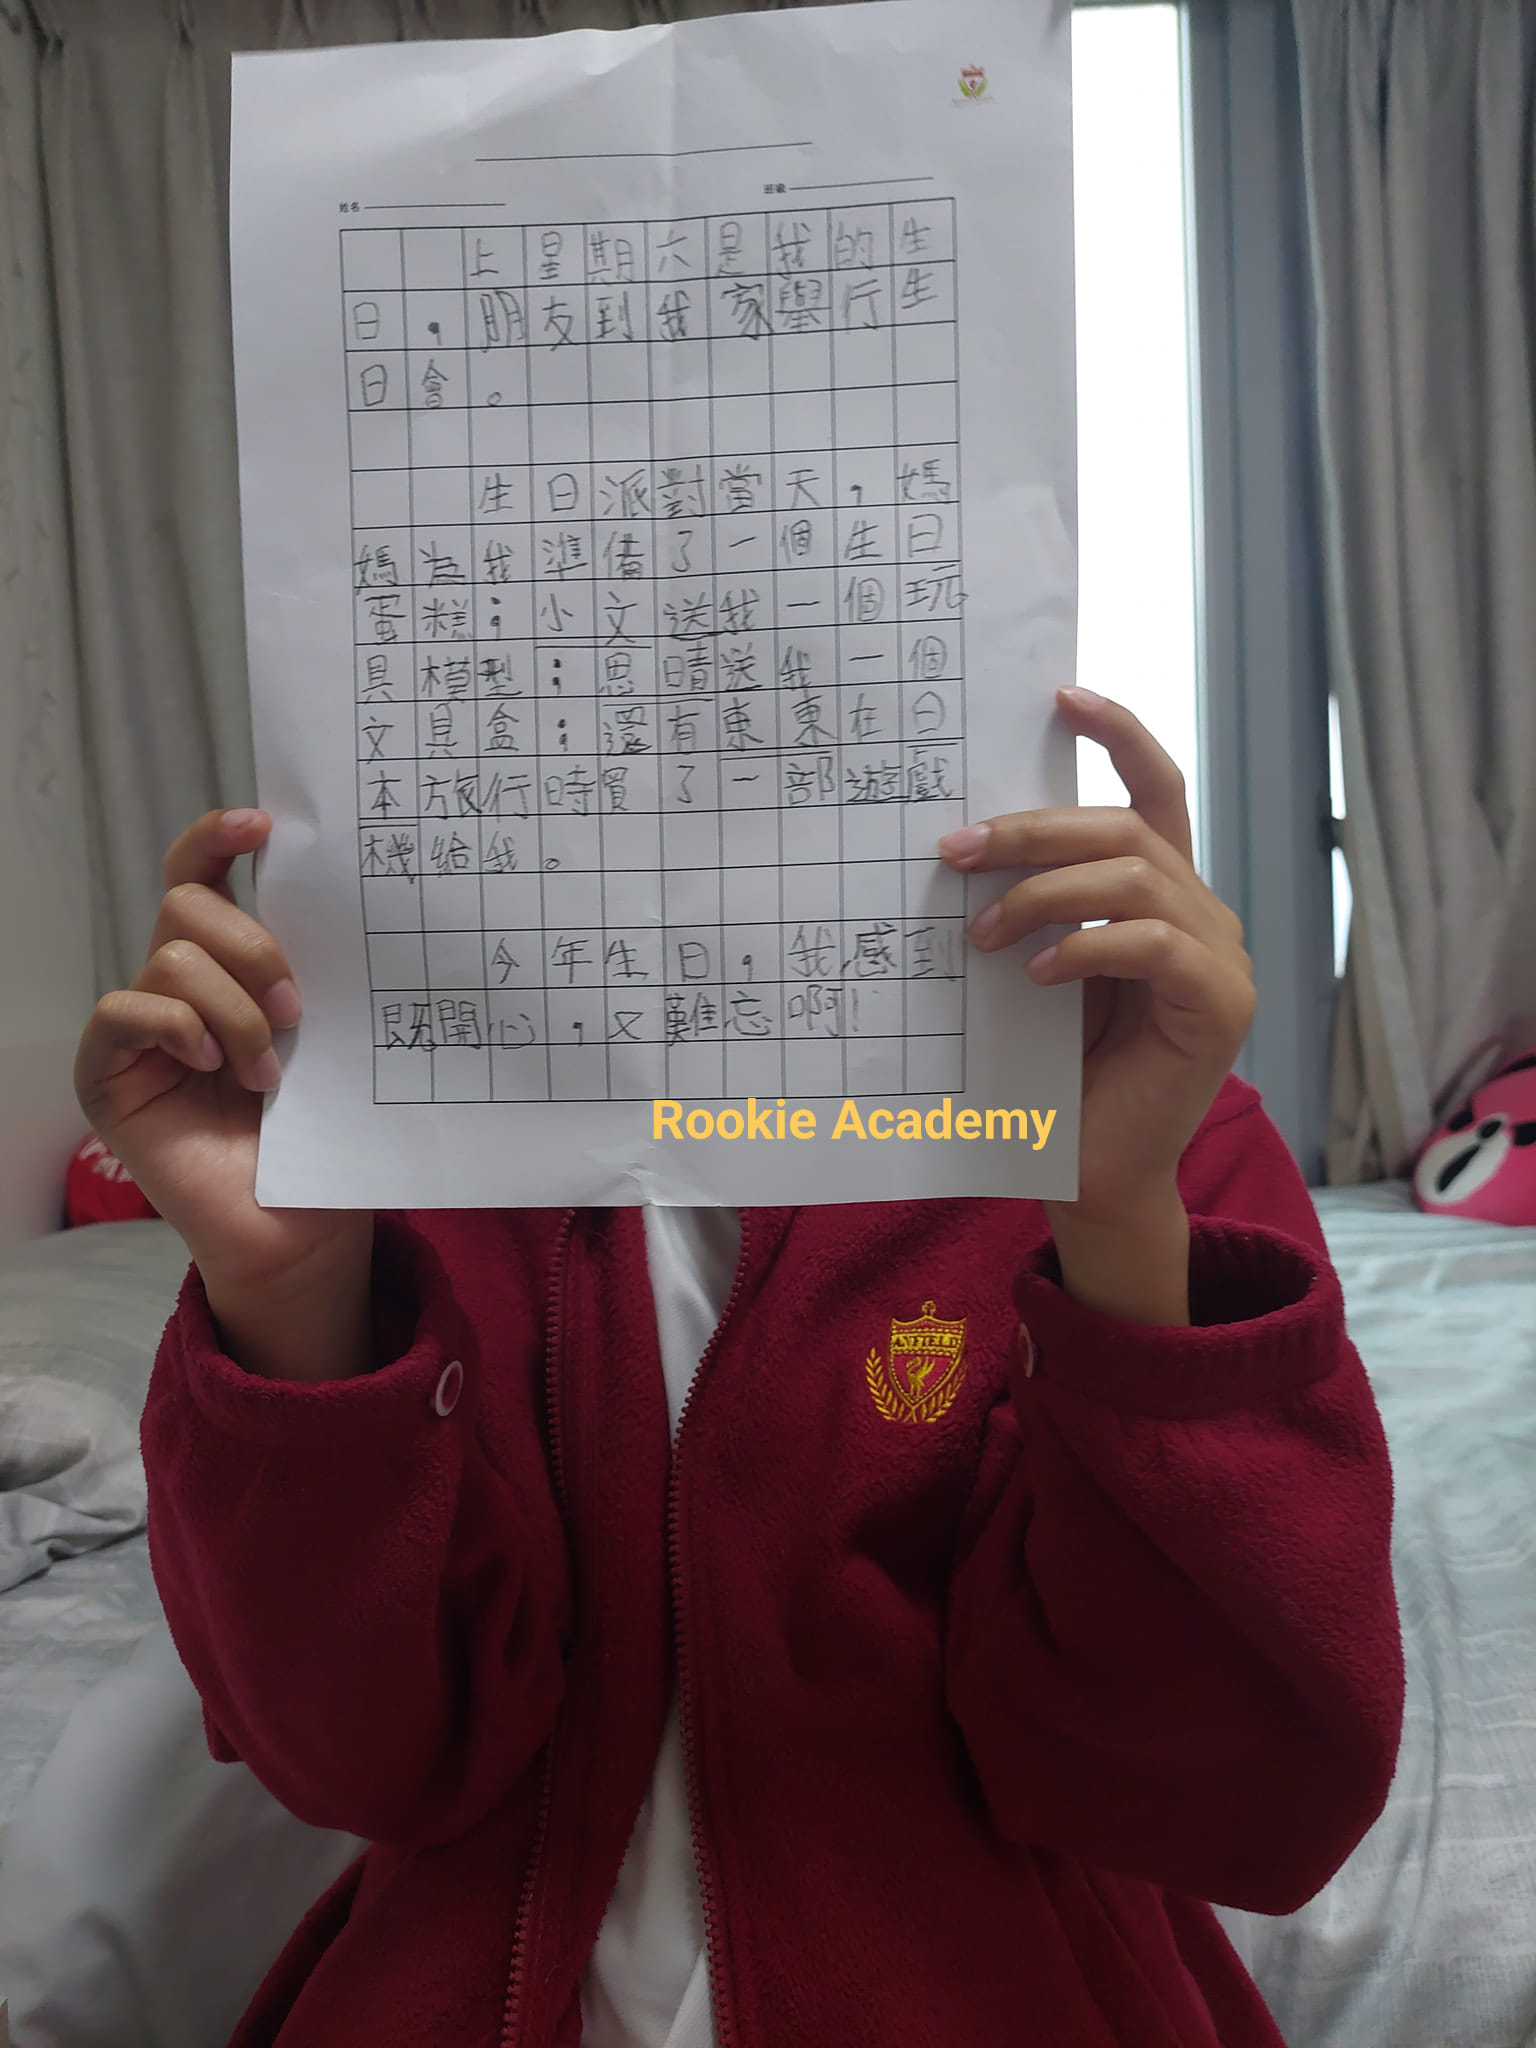 姓名
班級
上星期六是我的生
日，朋友到我家舉行生
日會。
生日派對當天，媽
媽為我準備了一個生日
蛋糕；小文送我一個玩
具模型；思晴送我一個
文具盒；還有東東在日
本旅行時買了一部遊戲
機給我。
今年生日，我感到
既開心，又難忘啊！
Rookie Academy
ANFIELD